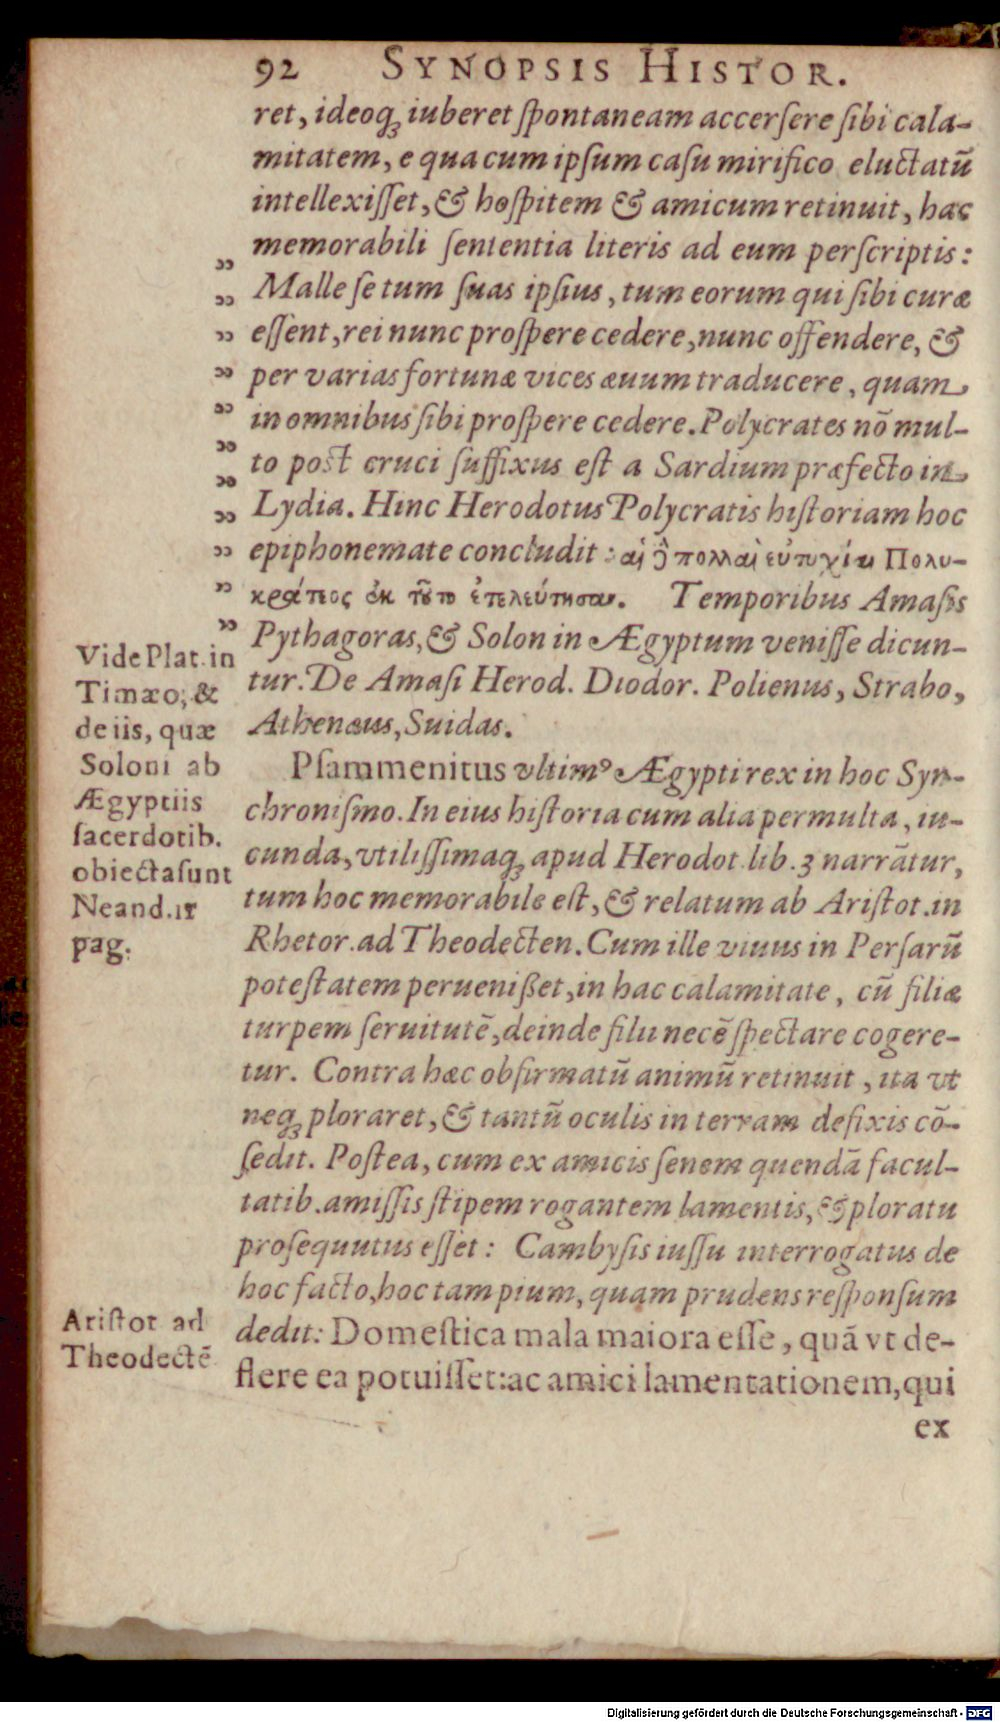 92 SYNOPSIS HISTOR.
ret, ideoq́ꝫ iuberet ſpontaneam accerſere ſibi cala-
mitatem, e qua cum ipſum caſu mirifico eluctatũ
intellexiſſet, & hoſpitem & amicum retinuit, hac
memorabili ſententia literis ad eum perſcriptis:
Malle ſe tum ſuas ipſius, tum eorum qui ſibi curæ
eſſent, rei nunc proſpere cedere, nunc offendere, &
per varias fortunæ vices æuum traducere, quam
in omnibus ſibi proſpere cedere. Polycrates nõ mul-
to poſt cruci ſuffixus eſt a Sardium præfecto in
Lydia. Hinc Herodotus Polycratis hiſtoriam hoc
epiphonemate concludit: αἱ πολλαὶ εὐτυχίαι Πολυ-
κράτεος ἐκ τοῦτο ἐτελεύτησαν. Temporibus Amaſis
Pythagoras, & Solon in Ægyptum veniſſe dicun-
tur. De Amaſi Herod. Diodor. Polienus, Strabo,
Athenæus, Suidas.
Vide Plat. in
Timæo, &
de iis, quæ
Soloni ab
Ægyptiis
ſacerdotib.
obiecta ſunt
Neand.
pag.
Pſammenitus vltimꝰ Ægypti rex in hoc Syn-
chroniſmo. In eius hiſtoria cum alia permulta, iu-
cunda, vtiliſſimaqꝫ apud Herodot. lib. 3 narrãtur,
tum hoc memorabile eſt, & relatum ab Ariſtot. in
Rhetor. ad Theodecten. Cum ille viuus in Perſarũ
poteſtatem perueniſſet, in hac calamitate, cũ filiæ
turpem ſeruitutẽ, deinde filii necẽ ſpectare cogere-
tur. Contra hæc obfirmatũ animũ retinuit, ita vt
neqꝫ ploraret, & tantũ oculis in terram defixis cõ-
ſedit. Poſtea, cum ex amicis ſenem quendã facul-
tatib. amiſſis ſtipem rogantem lamentis, & ploratu
proſequutus eſſet: Cambyſis iuſſu interrogatus de
hoc facto, hoc tam pium, quam prudens reſponſum
dedit: Domeſtica mala maiora eſſe, quã vt de-
flere ea potuiſſet: ac amici lamentationem, qui
Ariſtot ad
Theodectẽ
ex
Digitalisierung gefördert durch die Deutsche Forschungsgemeinschaft - DFG